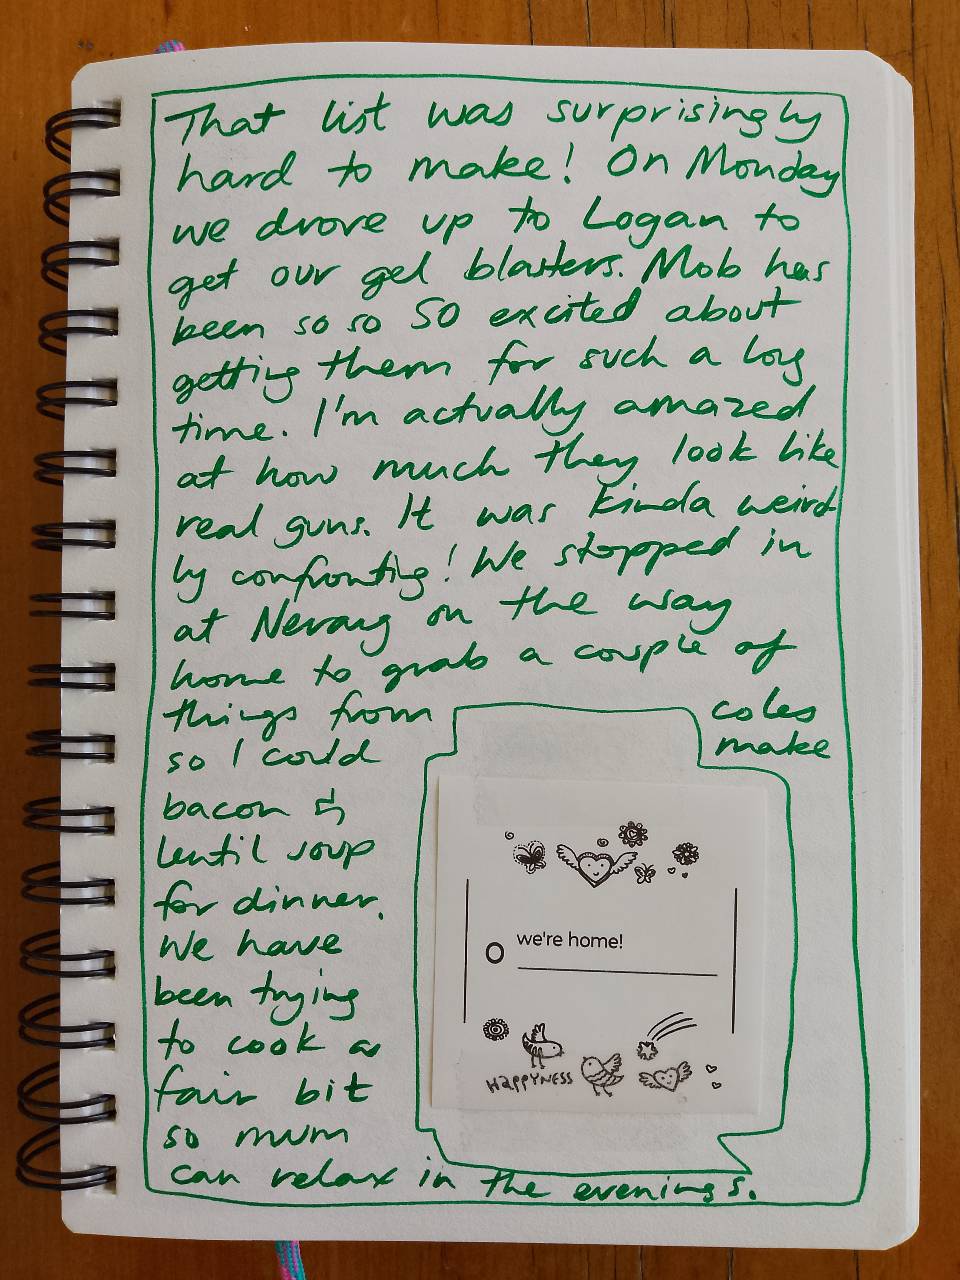 That list was surprisingly
hard to make! On Monday
we drove up to Logan to
get our gel blasters. Mob has
been so so SO excited about
getting them for such a long
time. I'm actually amazed
at how much they look like
real guns. It was kinda weird
ly confronting! We stopped in
at Nerang on the way
home to grab a couple of
things from coles
so I could make
bacon &
lentil soup
for dinner.
We have
been trying
to cook a
fair bit
so mum
can relax in the evenings.
O we're home!
HAPPYNESS